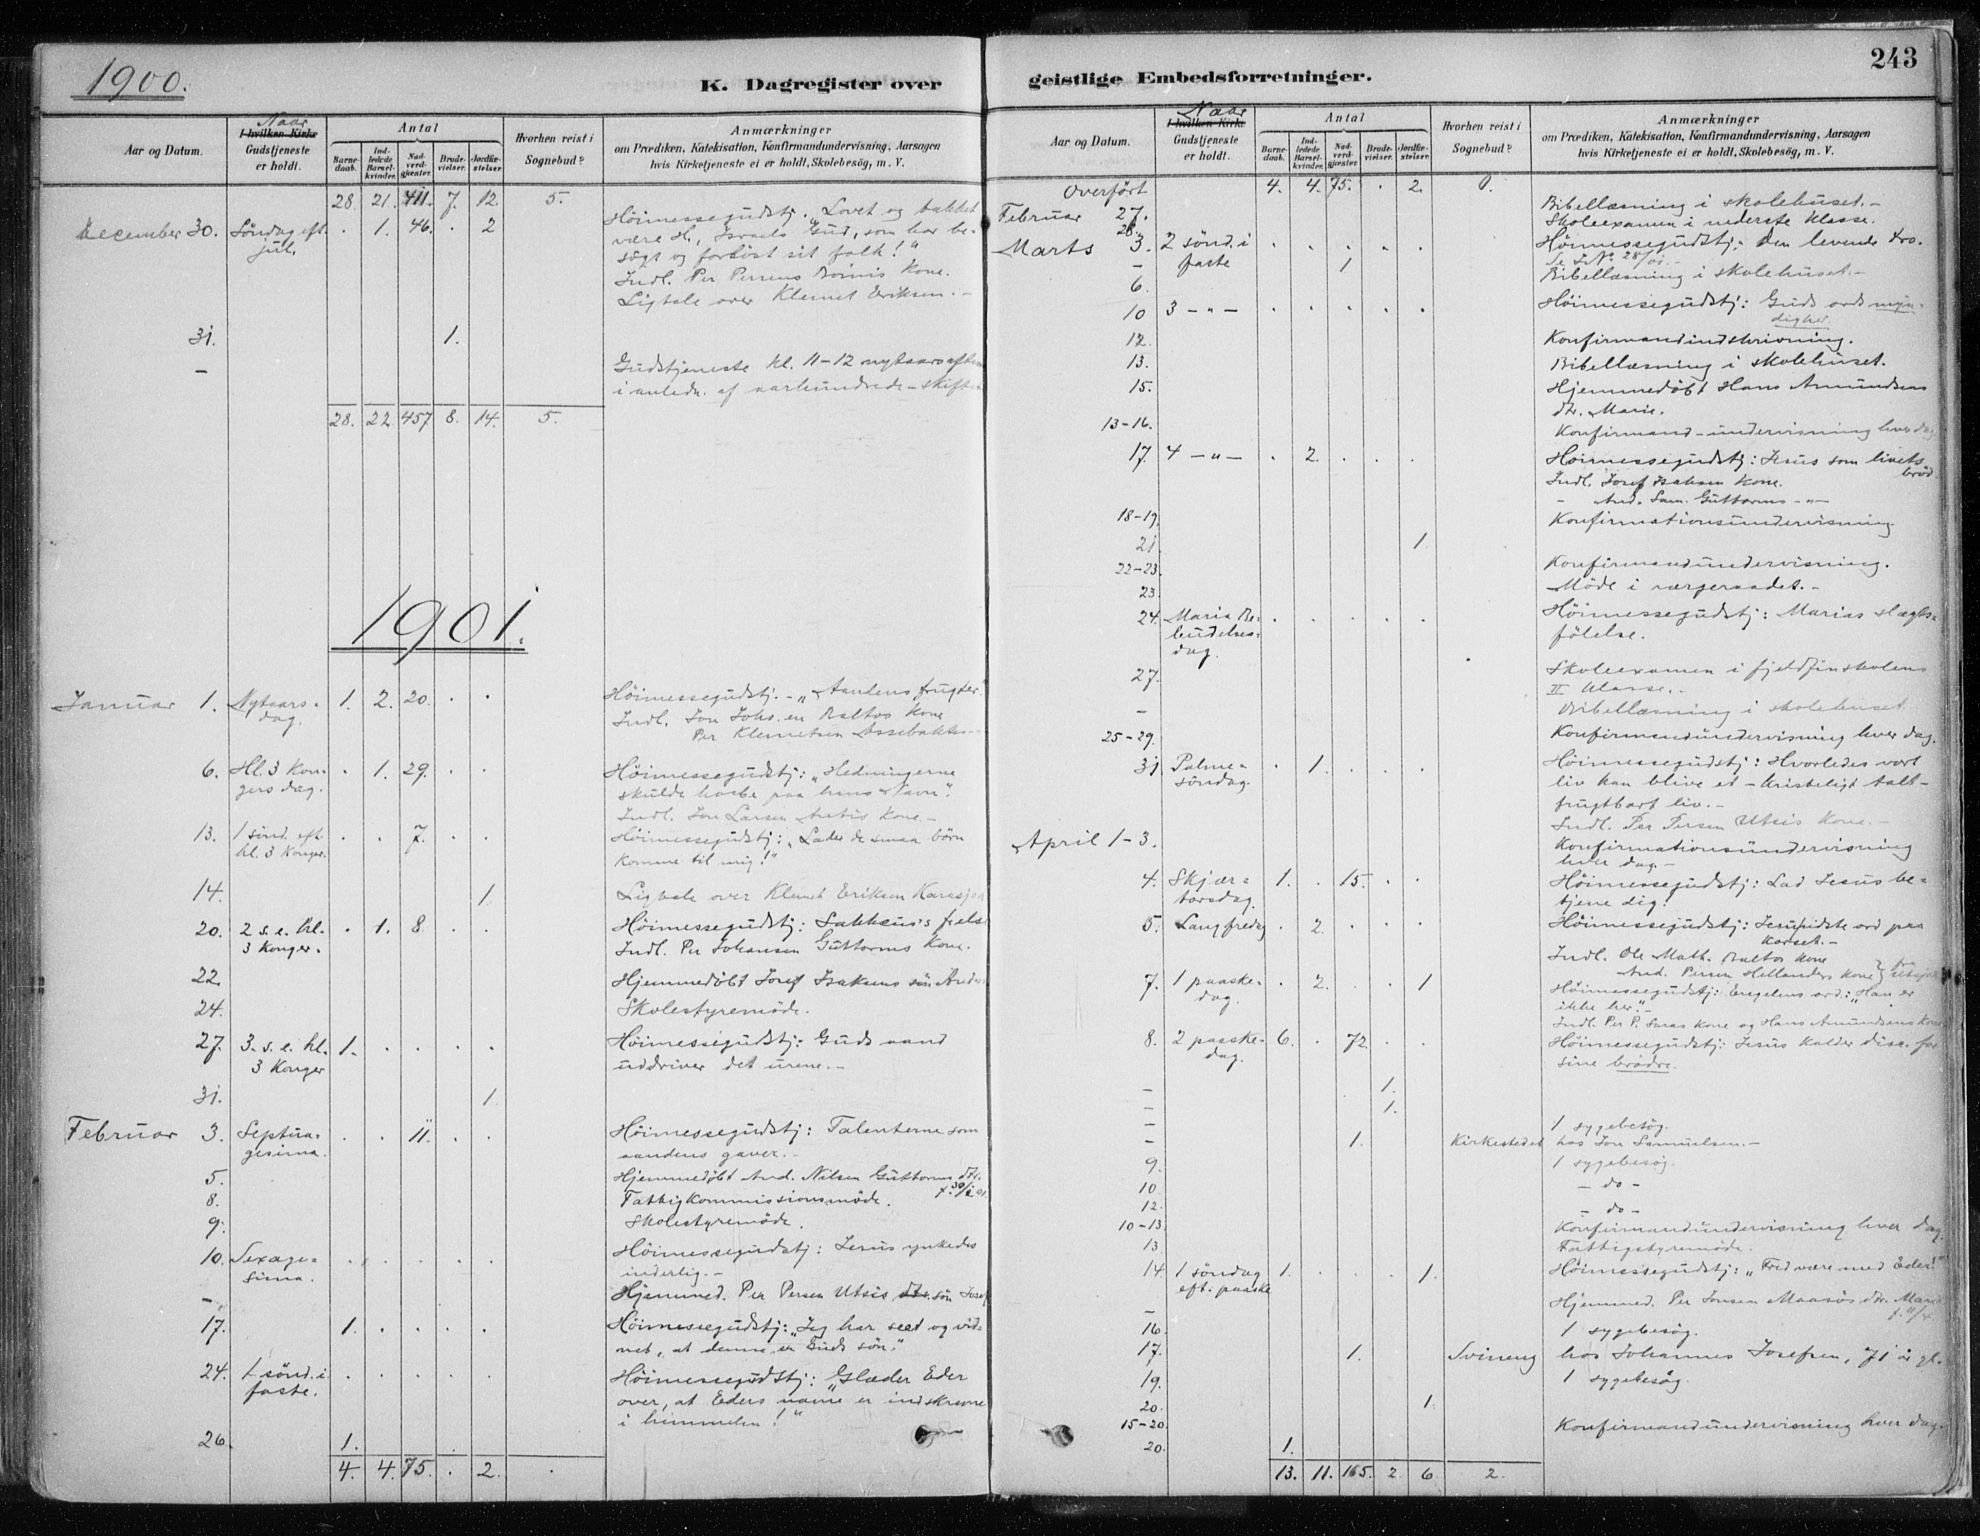 1900.
K. Dagregister over
Aar og Datum.
Naar
I hvilken Kirke
Gudstjeneste
er holdt.
Antal
Barne-
daab.
Ind-
ledede
Barsel-
kvinder.
Nad-
verd-
gjæster.
Brude-
vielser.
Jordfæ-
stelser.
Hvorhen reist i
Sognebud?
Anmærkninger
om Prædiken, Katekisation, Konfirmandundervisning, Aarsagen
hvis Kirketjeneste ei er holdt, Skolebesög, m. V.
28. 21. 411. 7. 12. 5.
December 30. Söndag eft. . 1. 46. . 2 Höimessegudstj. "Lovet og takket
jul. være H., Israels Gud, som har be-
sögt og forlöst sit folk!"
Indl. Per Persens Kone.
Ligtale over Klemet Eriksen. -
31. 1.
- Gudstjeneste kl. 11-12 nytaarsaften
i anledn. af aarhundrede-skiftet
28. 22. 457. 8. 14. 5.
1901.
Januar 1. Nytaars- 1. 2. 20. . . Höimessegudstj. - "Aandens frugter."
dag. Indl. Jon Johs.en Baltos Kone
Per Klemetsen
6. Hl. 3 Kon- . 1. 29. . . Höimessegudstj: "Hedningerne
gers dag. skulde haabe paa hans Navn".
Indl. Jon Larsen Kone. -
13. 1 sönd. eft. . . 7. . . Höimessegudstj: "Lader de smaa börn
hl. 3 Konger. komme til mig!"
14. 1. Ligtale over Klemet Eriksen Karasjok
20. 2 s. e. hl. . 1. 8. . . Höimessegudstj: Sakkæus's frelse
3 Konger. Indl. Per Johansen Guttorms Kone.
22. Hjemmedöbt Josef Isaksens sön
24. Skolestyremöde.
27. 3. s. e. hl. 1. . . . . Höimessegudstj: Guds aand
3 Konger uddriver det urene. -
31. 1.
Februar 3. Septua- . . 11. . . Höimessegudstj: Talenterne som
gesima. aandens gaver. -
5. Hjemmedöbt And. Nilsen Guttorms dtr.
8. Fattigkommissionsmöde.
9. Skolestyremöde.
10. Sexage- . . . . . Höimessegudstj: Jesus ynkedes
sima. inderlig. -
- Hjemmed. Per Persen Utsis dtr. sön Josef
17. 1. . . . . Höimessegudstj: "Jeg har seet og vid-
net, at denne er Guds sön."
24. 1 sönd. i . . . . . Höimessegudstj: "Glæder Eder
faste. over, at Eders navne er indskrevne
i himmelen!"
26. 1.
4. 4. 75. . 2. .
243
geistlige Embedsforretninger.
Aar og Datum.
Naar
I hvilken Kirke
Gudstjeneste
er holdt.
Antal
Barne-
daab.
Ind-
ledede
Barsel-
kvinder.
Nad-
verd-
gjæster.
Brude-
vielser.
Jordfæ-
stelser.
Hvorhen reist i
Sognebud?
Anmærkninger
om Prædiken, Katekisation, Konfirmandundervisning, Aarsagen
hvis Kirketjeneste ei er holdt, Skolebesög, m. V.
Overfört 4. 4. 75. . 2. 0.
Februar 27. Bibellæsning i skolehuset. -
28. Skoleexamen i nederste klasse.
Marts 3. 2 sönd. i . . . . . Höimessegudstj: Den levende tro.
- faste 1
6. Bibellæsning i skolehuset. -
10 3 - " - . . . . . Höimessegudstj: Guds ords myn-
dighed.
12. Konfirmandindskrivning.
13. Bibellæsning i skolehuset.
15. Hjemmedöbt Hans Amundsens
dtr. Marie.
13-16. Konfirmand-undervisning hver dag
17. 4 - " - . 2. . . . Höimessegudstj: Jesus som livets
bröd
Indl. Josef Isaksen Kone.
- And. Sam. Guttorms - " -
18-19. Konfirmationsundervisning
21. 1
22-23. Konfirmandundervisning.
23. Möde i værgeraadet. -
24. Maria Be- . . . . . Höimessegudstj: Marias slægts-
budelses- fölelse.
dag.
27. Skoleexamen i fjeldfinskolens
II klasse. -
- Bibellæsning i skolehuset
25-29. Konfirmandundervisning hver dag.
31 Palme- . 1. . . . Höimessegudstj: Hvorledes vort
söndag. liv kan blive et - kristeligt talt -
frugtbart liv. -
Indl. Per Persen Utsis Kone. -
April 1-3. Konfirmationsundervisning
hver dag. -
4. Skjær- 1. . 15. . . Höimessegudstj: Lad Jesus be-
torsdag. tjene dig!
5. Langfredag . 2. . . . Höimessegudstj: Jesu sidste ord paa
korset. -
Indl. Ole Math. Baltos Kone
And. Persen Hellanders Kone
7. 1 paaske- . 2. . . 1 Höimessegudstj: Engelens ord: "Han er
dag. ikke her." -
Indl. Per P. Saras Kone og Hans Amundsens Kone
8. 2 paaske- 6. . 72. . . Höimessegudstj: Jesus kalder disc. for
dag. sine brödre.
- 1.
- 1.
- 1 sygebesög.
- 1. Kirkestedet hos Jon Samuelsen. -
9. 1 sygebesög.
10 - do -
12. - do -
10-13. Konfirmandundervisning hver dag.
13 Fattigstyremöde.
14. 1 söndag 1. . . . 1. Höimessegudstj: "Fred være med Eder!"
eft. paaske
- Hjemmed. Per Jonsen Maasös dtr.
16. 1 sygebesög.
17. 1. Svineng hos Johannes Josefsen, 71 år gl.
19. 1 sygebesög.
20. 1.
15-20. Konfirmandundervisning hver dag.
20. 1.
13. 11. 165. 2. 6. 2.